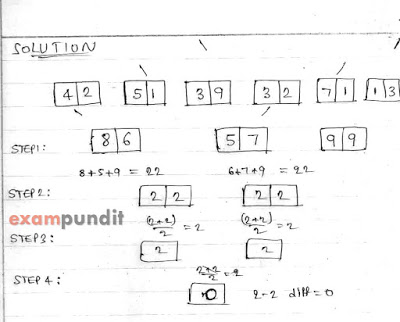 SOLUTION
42 51 39 32 71 13
STEP1: 86 57 99
8+5+9 = 22 6+7+9 = 22
STEP2: 22 22
exampundit (2+2)/2 = 2 (2+2)/2 = 2
STEP3: 2 2
2+2/2 = 2
STEP 4: 0 2-2 diff = 0